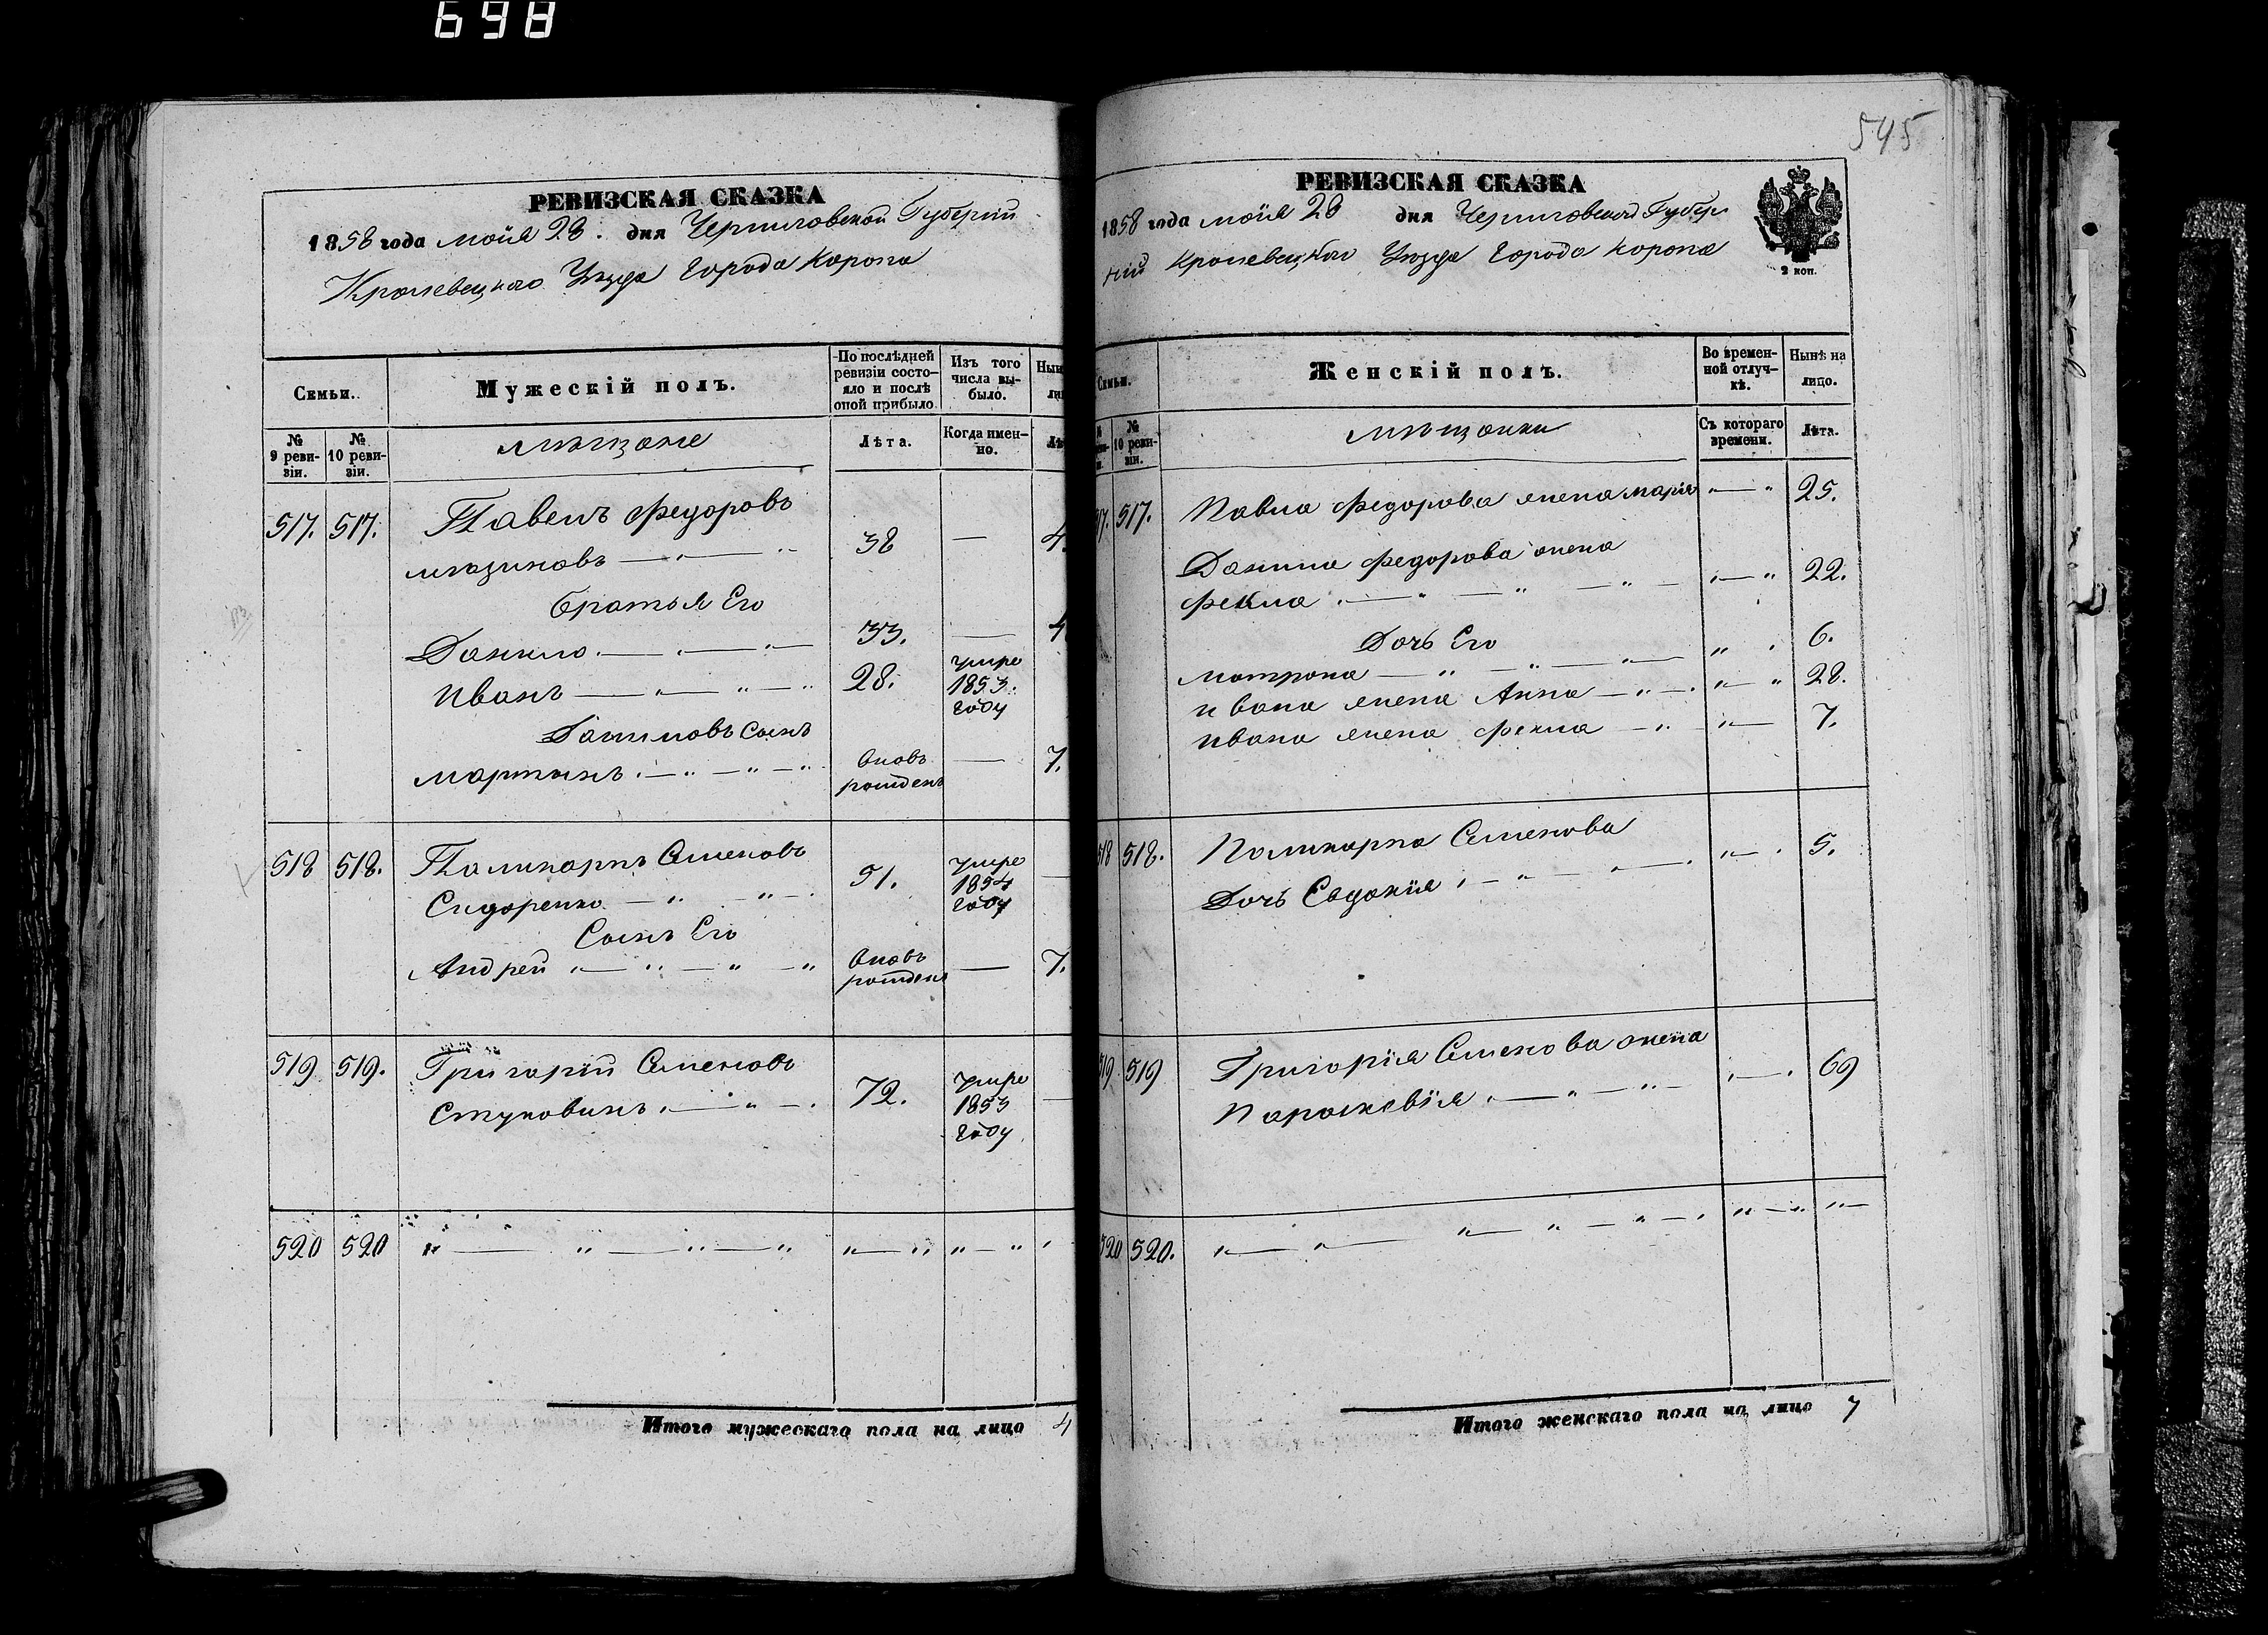 698
РЕВИЗСКАЯ СКАЗКА
1858 года мая 28. дня Черниговской Губерніи
Кролевецкаго Уѣзда Города Коропа
Семьи.
Мужескій полъ.
По послѣдней ревизіи состояло и послѣ оной прибыло.
Изъ того числа выбыло.
№ 9 ревизіи.
№ 10 ревизіи.
мѣщане
Лѣта.
Когда именно.
517. 517. Павелъ Федоровъ
38 —
Братья Его
Данило 33. —
Иванъ 28. умре 1853. году
Даниловъ Сынъ
Мартынъ вновь рожденъ — 7.
518 518. Поликарпъ Семеновъ
Сидоренко 51. умре 1854 году —
Сынъ Его
Андрей вновь рожденъ — 7.
519 519. Григорій Семеновъ
72. умре 1853 году —
520 520
Итого мужескаго пола на лицо 4
545
РЕВИЗСКАЯ СКАЗКА
1858 года мая 28 дня Черниговской Губер
ніи Кролевецкаго Уѣзда Города Коропа
2 коп.
Семьи.
Женскій полъ.
Во временной отлучкѣ.
Нынѣ на лицо.
№ 10 ревизіи.
мѣщанки
Съ котораго времени.
Лѣта.
517. Павла Федорова жена Марія 25.
Данила Федорова жена
Фекла 22.
Дочь Его
Матрона 6.
Ивана жена Анна 28.
Ивана жена Фекла 7.
518 518. Поликарпа Семенова
Дочь Евдокія 5.
519 519 Григорія Семенова жена
Параскевія 69
520 520.
Итого женскаго пола на лицо 7